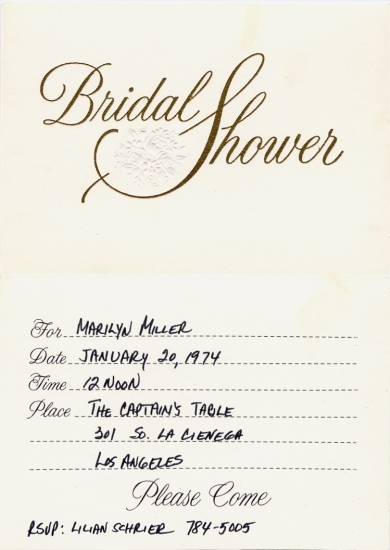 Bridal Shower
For MARILYN MILLER
Date JANUARY 20, 1974
Time 12 NOON
Place THE CAPTAIN'S TABLE
301 SO. LA CIENEGA
LOS ANGELES
Please Come
RSVP: LILIAN SCHRIER 784-5005